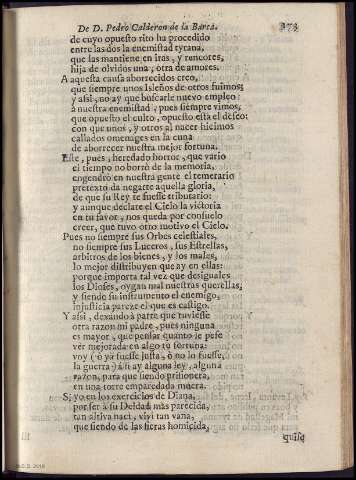 De D. Pedro Calderon de la Barca. 373
de cuyo opuesto rito ha procedido
entre las dos la enemistad tyrana,
que las mantiene en iras, y rencores,
hija de olvidos una, otra de amores.
A aquesta causa aborrecidos creo,
que siempre unos Isleños de otros fuimos;
y assi, no ay que buscarle nuevo empleo
à nuestra enemistad; pues siempre vimos,
que opuesto el culto, opuesto està el deseo:
con que unos, y otros al nacer hicimos
callados omenages en la cuna
de aborrecer nuestra mejor fortuna.
Este, pues, heredado horror, que vario
el tiempo no borrò de la memoria,
engendrò en nuestra gente el temerario
pretexto da negarte aquella gloria,
de que su Rey te fuesse tributario:
y aunque declare el Cielo la victoria
en tu favor, nos queda por consuelo
creer, que tuvo otro motivo el Cielo.
Pues no siempre sus Orbes celestiales,
no siempre sus Luceros, sus Estrellas,
arbitros de los bienes, y los males,
lo mejor distribuyen que ay en ellas:
porque importa tal vez que desiguales
los Dioses, oygan mal nuestras querellas,
y siendo su instrumento el enemigo,
injusticia parece el que es castigo.
Y assi, dexando à parte que tuviesse
otra razon mi padre, pues ninguna
es mayor, que pensar quanto le pese
ver mejorada en algo tu fortuna:
voy (ò ya fuesse justa, ò no lo fuesse,
la guerra) à si ay alguna ley, alguna
razon, para que siendo prisionera,
en una torre emparedada muera.
Si yo en los exercicios de Diana,
por ser à su Deidad mas parecida,
tan altiva naci, vivi tan vana,
que siendo de las fieras homicida,
quise